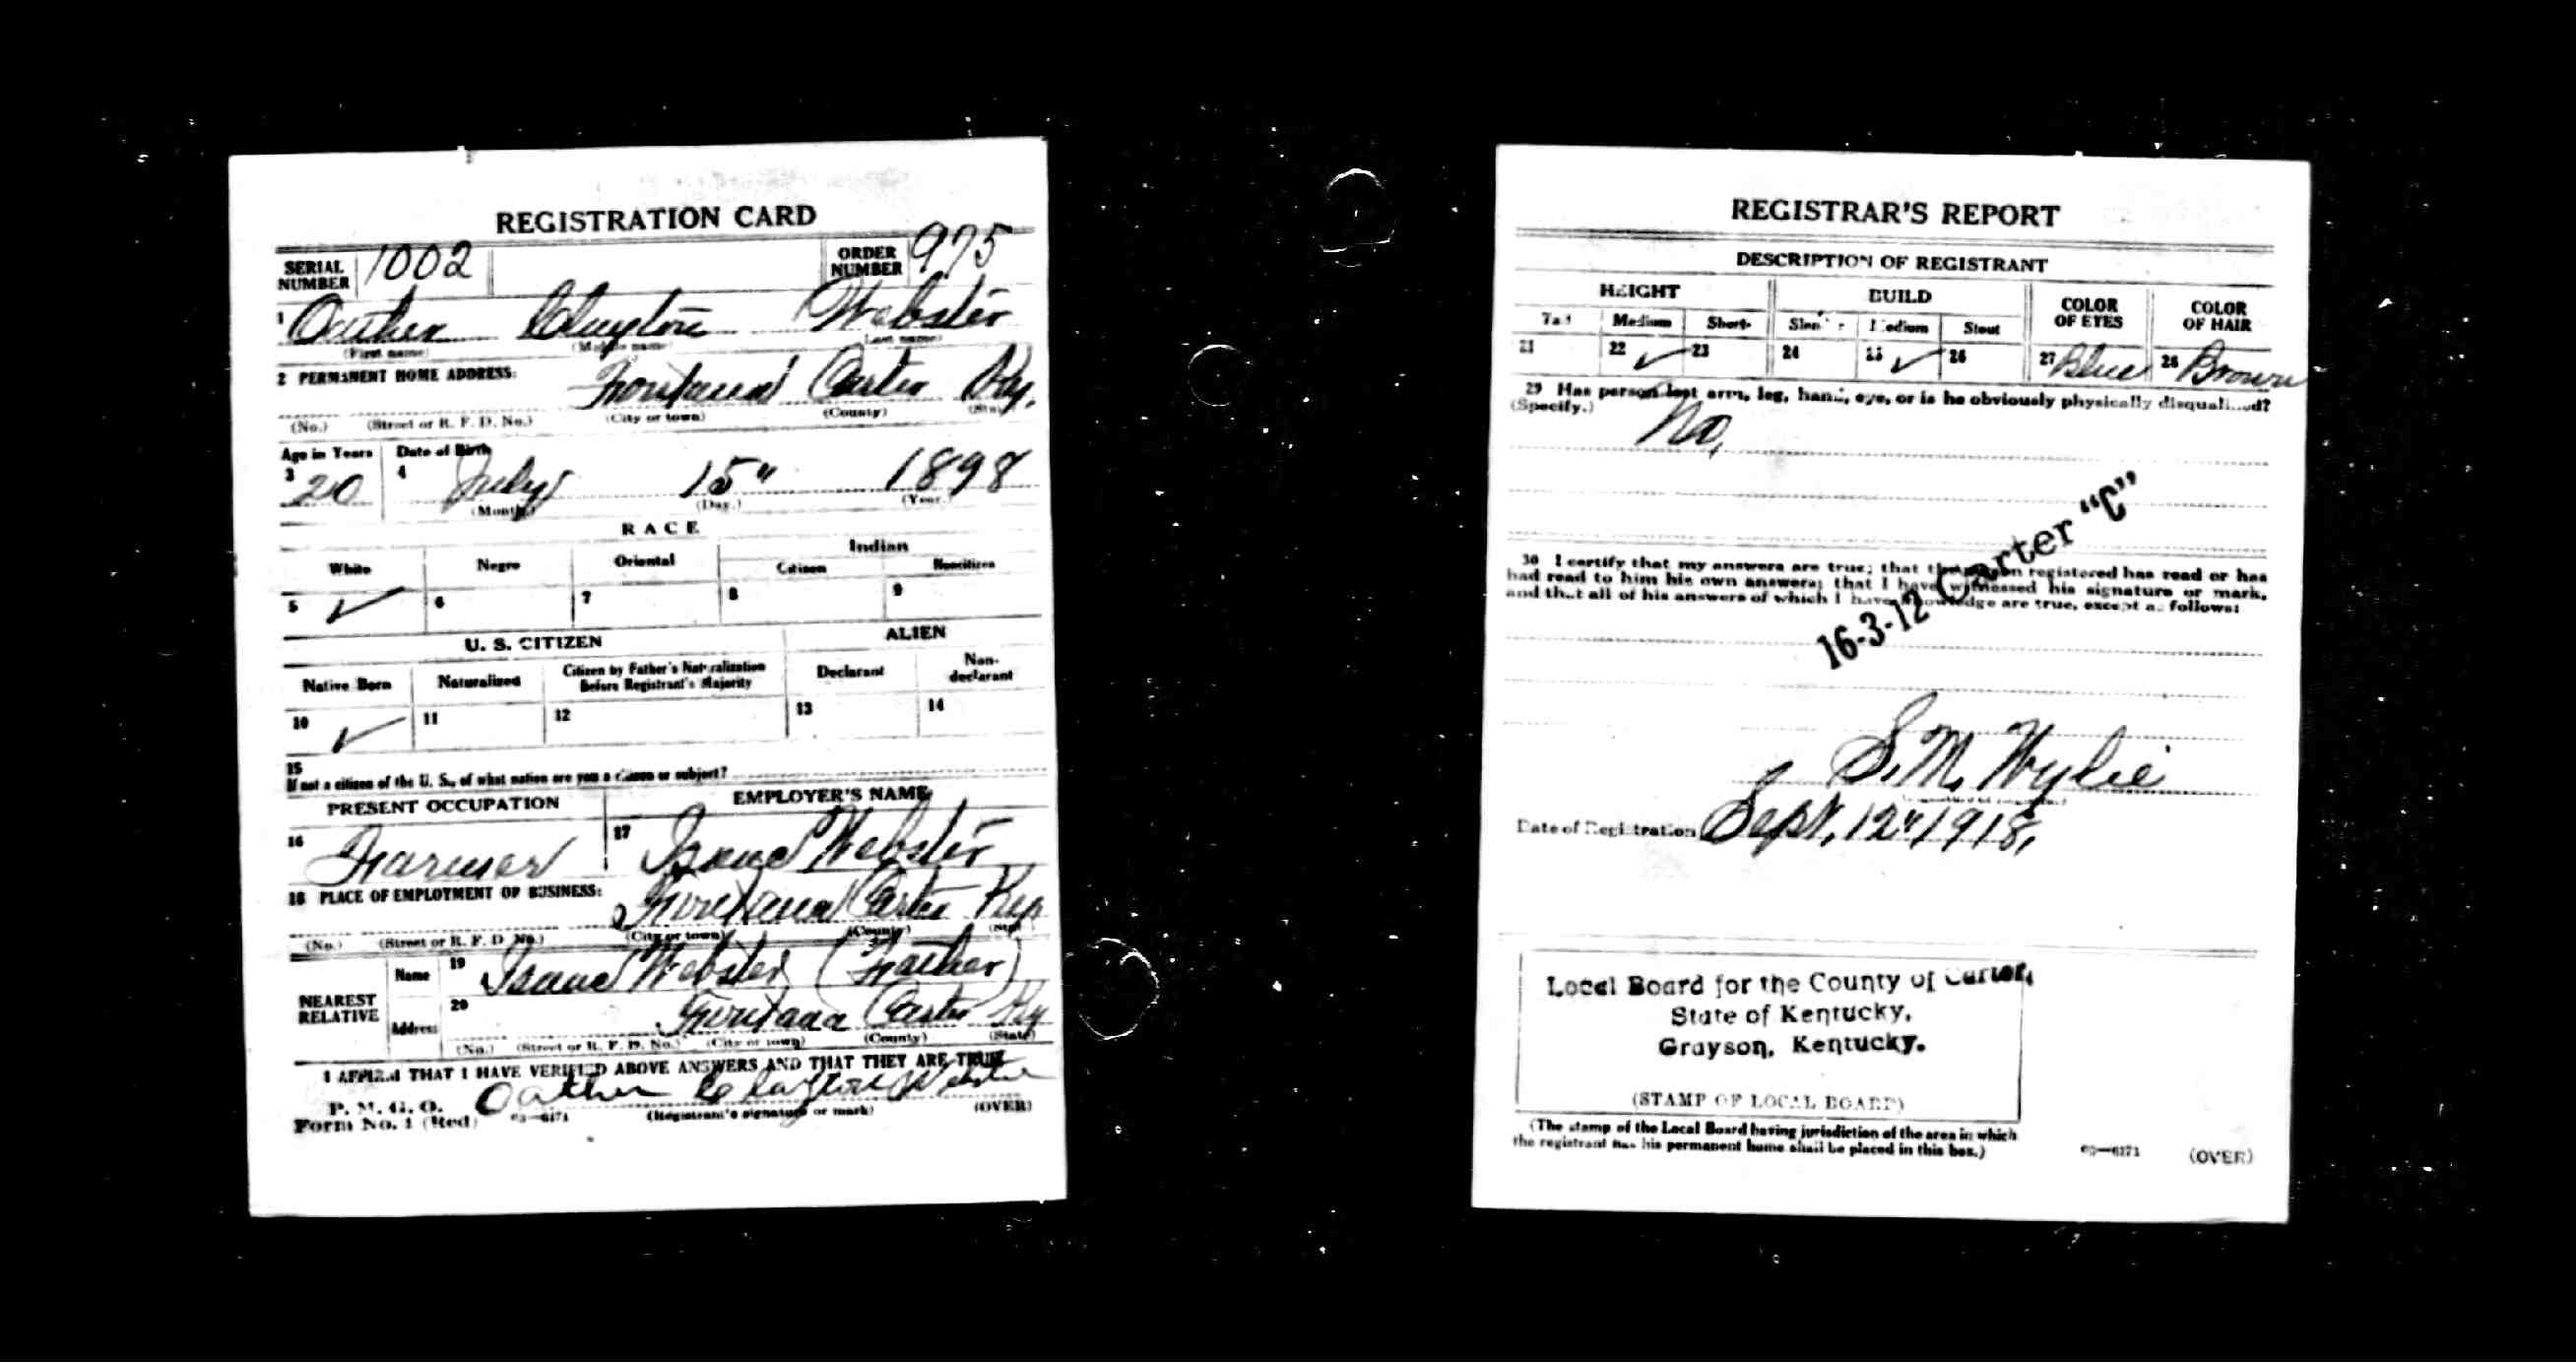 REGISTRATION CARD
SERIAL NUMBER 1002 ORDER NUMBER 975
1 Oather Clayton Webster
(First name) (Middle name) (Last name)
2 PERMANENT HOME ADDRESS:
Fontana Carter Ky.
(No.) (Street or R. F. D. No.) (City or town) (County) (State)
Age in Years Date of Birth
3 20 4 July 15" 1898
(Month.) (Day.) (Year.)
RACE
White Negro Oriental Indian
Citizen Noncitizen
5 ✓ 6 7 8 9
U. S. CITIZEN ALIEN
Native Born Naturalized Citizen by Father's Naturalization Before Registrant's Majority Declarant Non-declarant
10 ✓ 11 12 13 14
15
If not a citizen of the U. S., of what nation are you a citizen or subject?
PRESENT OCCUPATION EMPLOYER'S NAME
16 Farmer 17 Isaac Webster
18 PLACE OF EMPLOYMENT OR BUSINESS:
Fontana Carter Ky
(No.) (Street or R. F. D. No.) (City or town) (County) (State)
NEAREST RELATIVE Name 19 Isaac Webster (Father)
Address 20 Fontana Carter Ky
(No.) (Street or R. F. D. No.) (City or town) (County) (State)
I AFFIRM THAT I HAVE VERIFIED ABOVE ANSWERS AND THAT THEY ARE TRUE
P. M. G. O.
Form No. 1 (Red) 03—6171 Oather Clayton Webster
(Registrant's signature or mark) (OVER)
REGISTRAR'S REPORT
DESCRIPTION OF REGISTRANT
HEIGHT BUILD COLOR OF EYES COLOR OF HAIR
Tall Medium Short Slender Medium Stout
21 22 ✓ 23 24 25 ✓ 26 27 Blue 28 Brown
29 Has person lost arm, leg, hand, eye, or is he obviously physically disqualified?
(Specify.) No,
16-3-12 Carter "C"
30 I certify that my answers are true; that the person registered has read or has
had read to him his own answers; that I have witnessed his signature or mark,
and that all of his answers of which I have knowledge are true, except as follows:
S. M. Wylie
Date of Registration Sept, 12" 1918,
Local Board for the County of Carter,
State of Kentucky,
Grayson, Kentucky.
(STAMP OF LOCAL BOARD)
(The stamp of the Local Board having jurisdiction of the area in which
the registrant has his permanent home shall be placed in this box.)
03—6171 (OVER)